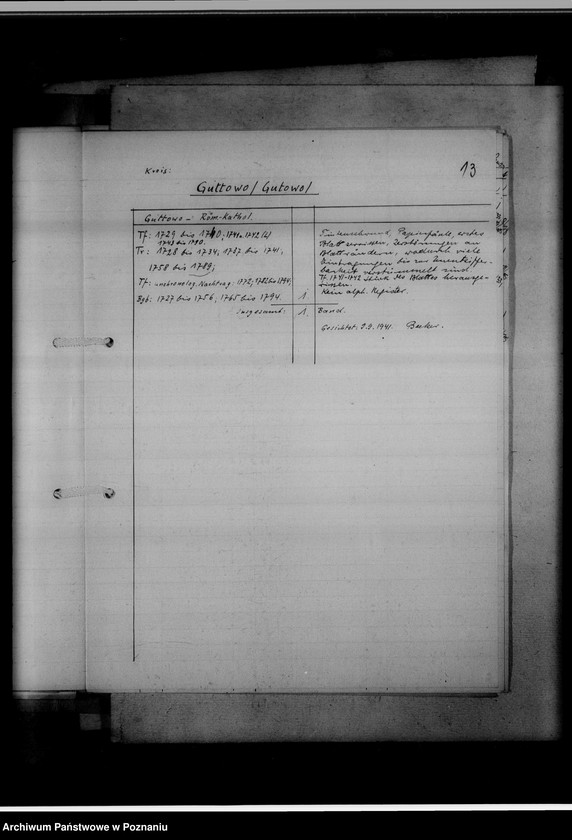 Kreis:
13
Guttowo / Gutowo /
Guttowo - Röm-Kathol.
Tf: 1729 bis 1740, 1741 u. 1742 (2)
1743 bis 1790.
Tr: 1728 bis 1734, 1737 bis 1741,
1758 bis 1789;
Tf: unchronolog. Nachtrag: 1772, 1782 bis 1794;
Bgb: 1727 bis 1756, 1765 bis 1794.
1
Tintenschwund, Papierfäule, erstes
Blatt zerrissen, Zerstörungen an
Blatträndern, wodurch viele
Eintragungen bis zur Unentziffer-
barkeit verstümmelt sind.
Tf. 1741-1742 Stück des Blattes herausge-
rissen.
Kein alph. Register.
insgesamt: 1 Band.
Gesichtet: 9.9.1941. Becker.
Archiwum Państwowe w Poznaniu